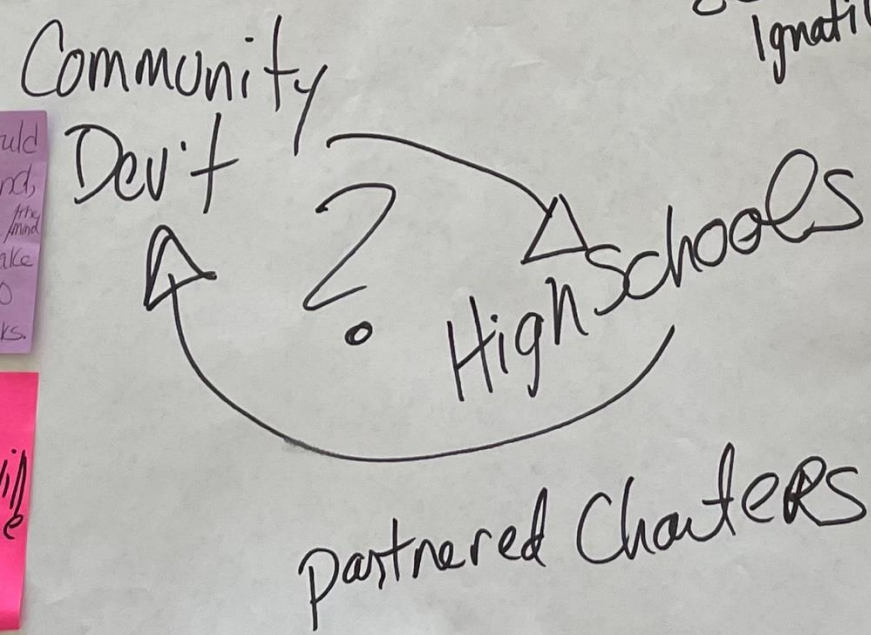 Community
Dev't
?
High Schools
partnered Charters
Ignati
uld
nd,
the
mind
ake
o
ks.